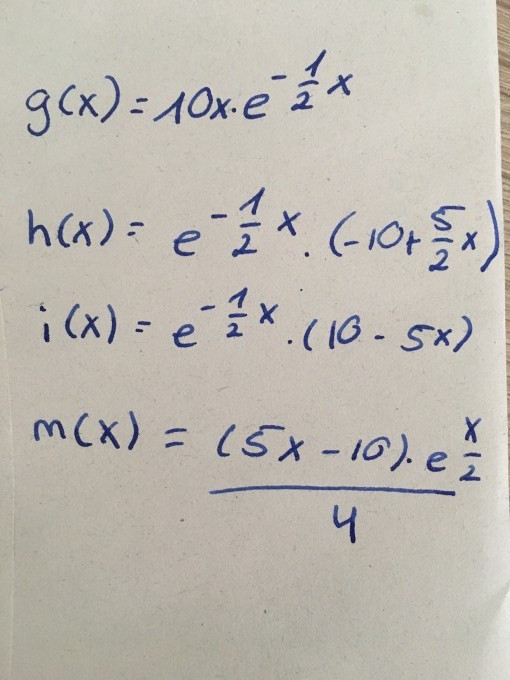 g(x) = 10x·e^{-\frac{1}{2}x}
h(x) = e^{-\frac{1}{2}x}·(-10+\frac{5}{2}x)
i(x) = e^{-\frac{1}{2}x}·(10-5x)
m(x) = \frac{(5x-10)·e^{\frac{x}{2}}}{4}